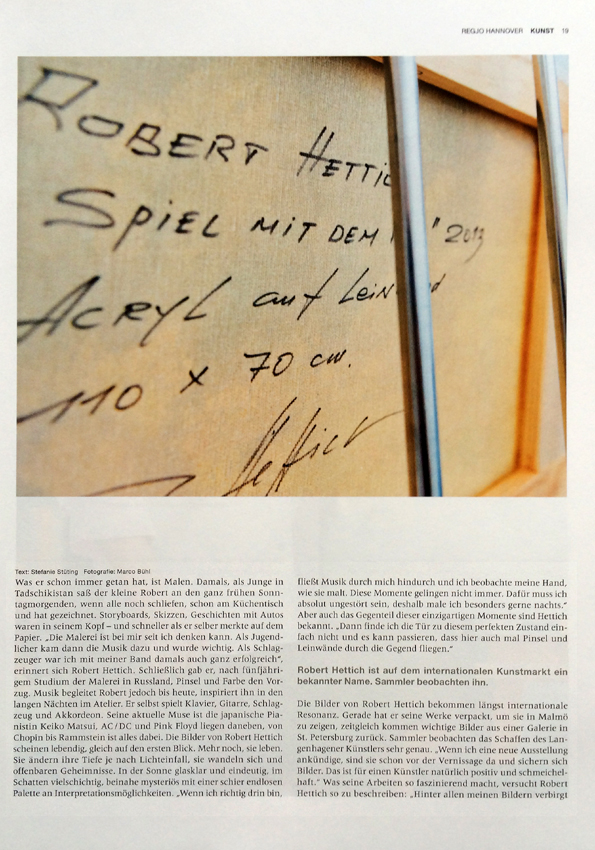 REGJO HANNOVER KUNST 19
ROBERT HETTIC
SPIEL MIT DEM " 2013
ACRYL auf Lein d
110 x 70 cm.
Hettich
Text: Stefanie Stüting Fotografie: Marco Bühl
Was er schon immer getan hat, ist Malen. Damals, als Junge in
Tadschikistan saß der kleine Robert an den ganz frühen Sonn-
tagmorgenden, wenn alle noch schliefen, schon am Küchentisch
und hat gezeichnet. Storyboards, Skizzen, Geschichten mit Autos
waren in seinem Kopf – und schneller als er selber merkte auf dem
Papier. „Die Malerei ist bei mir seit ich denken kann. Als Jugend-
licher kam dann die Musik dazu und wurde wichtig. Als Schlag-
zeuger war ich mit meiner Band damals auch ganz erfolgreich“,
erinnert sich Robert Hettich. Schließlich gab er, nach fünfjähri-
gem Studium der Malerei in Russland, Pinsel und Farbe den Vor-
zug. Musik begleitet Robert jedoch bis heute, inspiriert ihn in den
langen Nächten im Atelier. Er selbst spielt Klavier, Gitarre, Schlag-
zeug und Akkordeon. Seine aktuelle Muse ist die japanische Pia-
nistin Keiko Matsui, AC/DC und Pink Floyd liegen daneben, von
Chopin bis Rammstein ist alles dabei. Die Bilder von Robert Hettich
scheinen lebendig, gleich auf den ersten Blick. Mehr noch, sie leben.
Sie ändern ihre Tiefe je nach Lichteinfall, sie wandeln sich und
offenbaren Geheimnisse. In der Sonne glasklar und eindeutig, im
Schatten vielschichtig, beinahe mysteriös mit einer schier endlosen
Palette an Interpretationsmöglichkeiten. „Wenn ich richtig drin bin,
fließt Musik durch mich hindurch und ich beobachte meine Hand,
wie sie malt. Diese Momente gelingen nicht immer. Dafür muss ich
absolut ungestört sein, deshalb male ich besonders gerne nachts.“
Aber auch das Gegenteil dieser einzigartigen Momente sind Hettich
bekannt. „Dann finde ich die Tür zu diesem perfekten Zustand ein-
fach nicht und es kann passieren, dass hier auch mal Pinsel und
Leinwände durch die Gegend fliegen.“
Robert Hettich ist auf dem internationalen Kunstmarkt ein
bekannter Name. Sammler beobachten ihn.
Die Bilder von Robert Hettich bekommen längst internationale
Resonanz. Gerade hat er seine Werke verpackt, um sie in Malmö
zu zeigen, zeitgleich kommen wichtige Bilder aus einer Galerie in
St. Petersburg zurück. Sammler beobachten das Schaffen des Lan-
genhagener Künstlers sehr genau. „Wenn ich eine neue Ausstellung
ankündige, sind sie schon vor der Vernissage da und sichern sich
Bilder. Das ist für einen Künstler natürlich positiv und schmeichel-
haft.“ Was seine Arbeiten so faszinierend macht, versucht Robert
Hettich so zu beschreiben: „Hinter allen meinen Bildern verbirgt